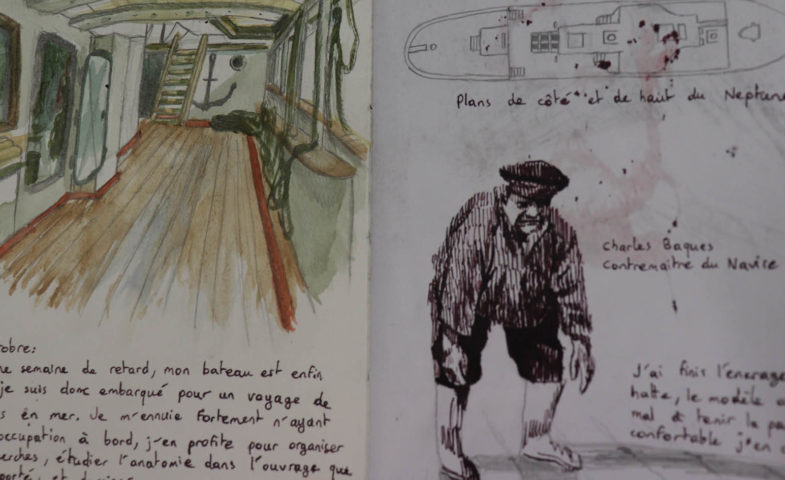 obre:
ne semaine de retard, mon bateau est enfin
je suis donc embarqué pour un voyage de
s en mer. Je m'ennuie fortement n'ayant
occupation à bord, j'en profite pour organiser
erches, étudier l'anatomie dans l'ouvrage que
porté, et
Plans de côté et de haut du Neptune
Charles Baques
Contremaitre du Navire
J'ai finis l'encrage
halte, le modèle a
mal à tenir la pa
confortable j'en a